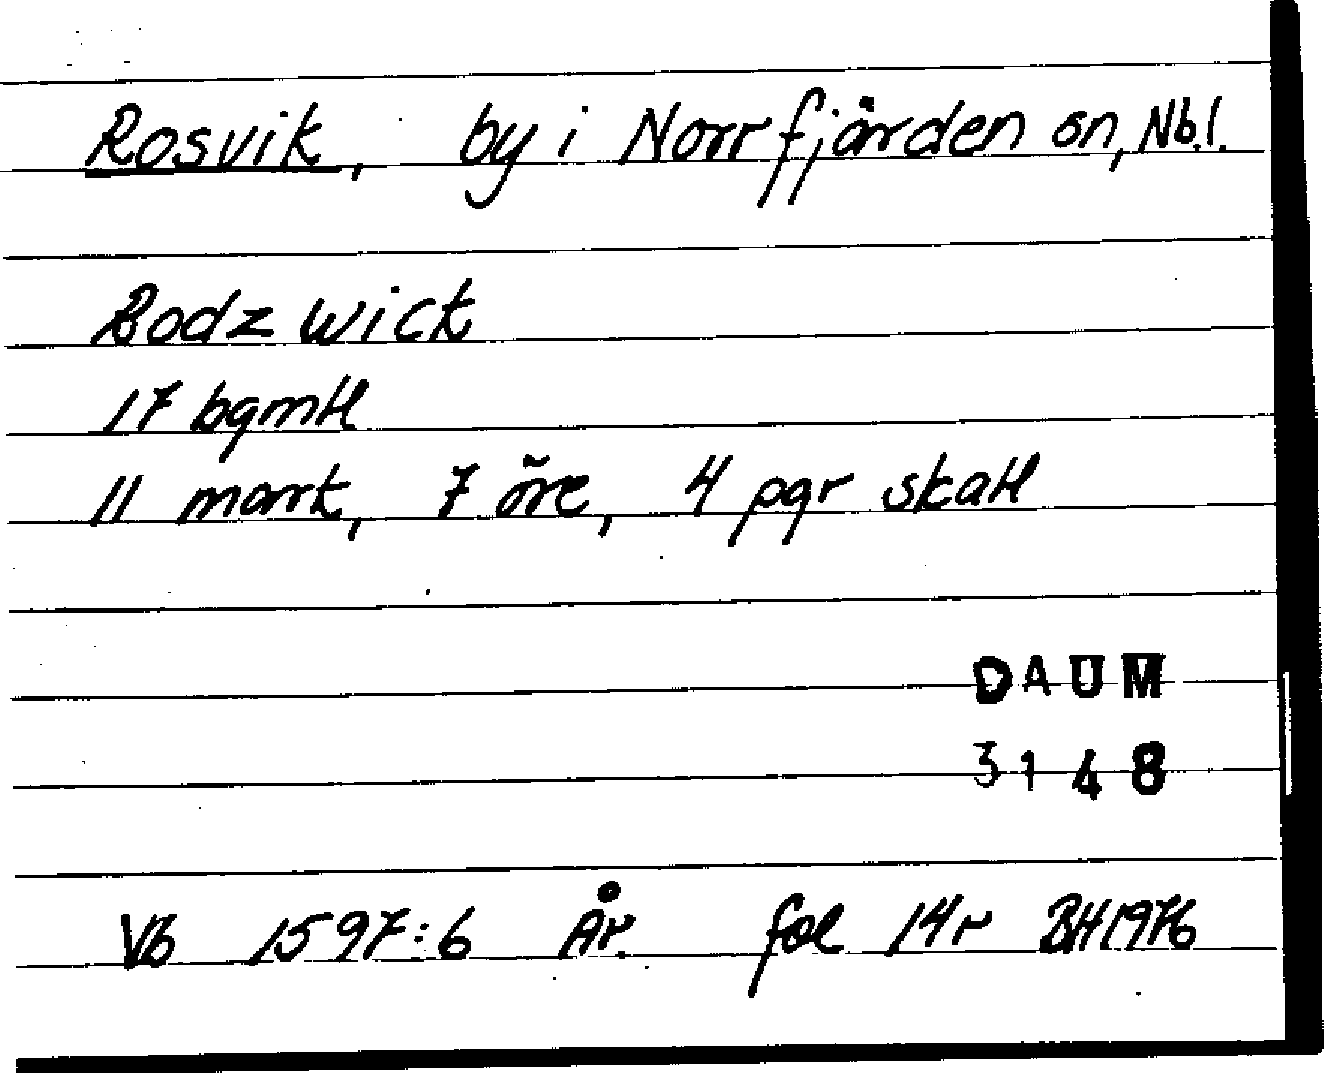 Rosvik, by i Norrfjärden sn, Nb.l.
Rodzwick
17 bgmtl
11 mark, 7 öre, 4 pgr skatt
DAUM
3148
Vb 1597:6 År. fol 14r BH1976